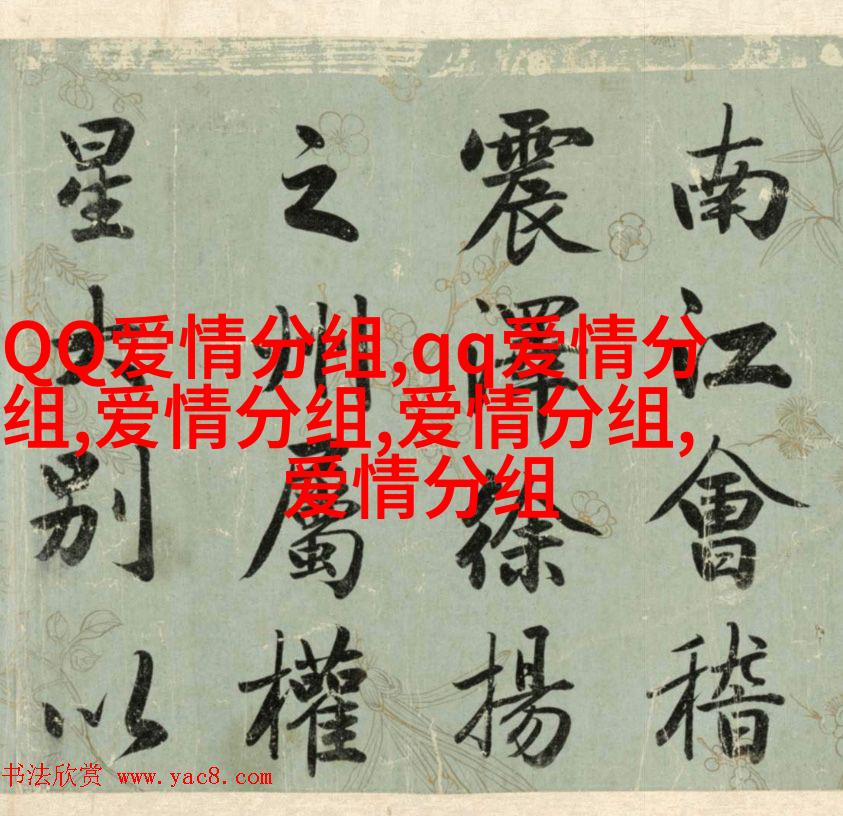 南江會稽
震澤徐揚
之州屬權
星別以
QQ爱情分组,qq爱情分
组,爱情分组,爱情分组,
爱情分组
书法欣赏 www.yac8.com